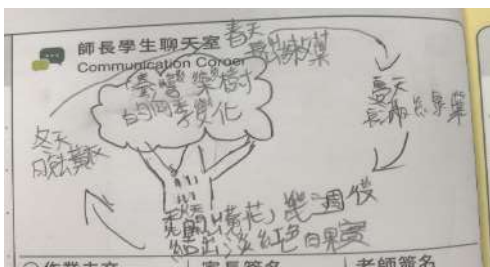 師長學生聊天室
Communication Corner
春天
長出嫩葉
臺灣欒樹
的四季變化
夏天
長滿綠葉
冬天
秋天
開出黃花,幾週後
結出淡紅色的果實
作業未交
家長簽名
老師簽名